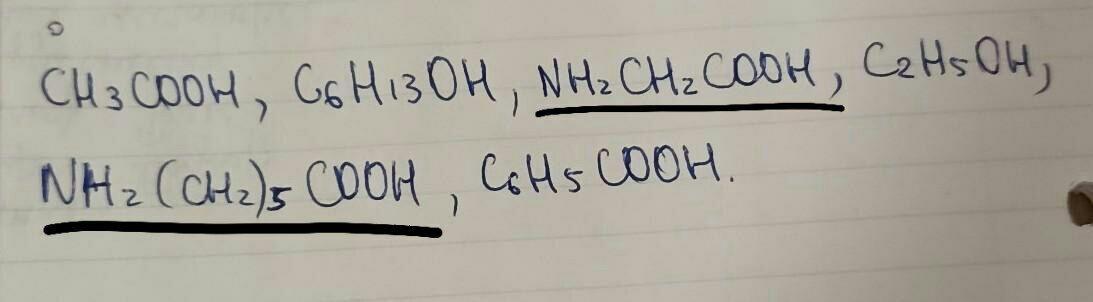 CH3COOH, C6H13OH, NH2CH2COOH, C2H5OH,
NH2(CH2)5COOH, C6H5COOH.